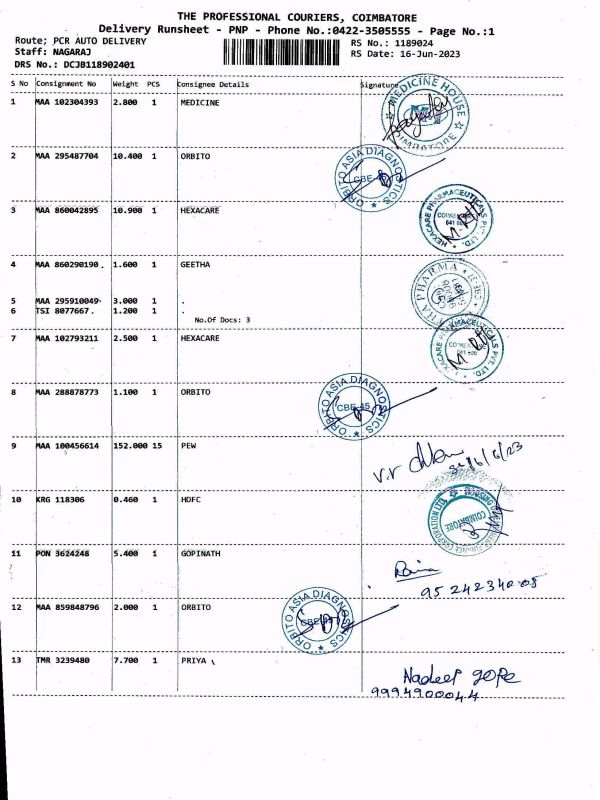 THE PROFESSIONAL COURIERS, COIMBATORE
Delivery Runsheet - PNP - Phone No.:0422-3505555 - Page No.:1
Route; PCR AUTO DELIVERY
RS No.: 1189024
Staff: NAGARAJ
RS Date: 16-Jun-2023
DRS No.: DCJB118902401
S No Consignment No Weight PCS Consignee Details Signature
1 MAA 102304393 2.800 1 MEDICINE
MEDICINE HOUSE
2 MAA 295487704 10.400 1 ORBITO
ORBITO ASIA DIAGNOSTICS
3 MAA 860042895 10.900 1 HEXACARE
HEXACARE PHARMACEUTICALS PVT. LTD.
4 MAA 860290190 1.600 1 GEETHA
PHARMA
5 MAA 295910049 3.000 1 .
6 TSI 8077667 1.200 1 .
No.Of Docs: 3
7 MAA 102793211 2.500 1 HEXACARE
HEXACARE PHARMACEUTICALS PVT. LTD.
8 MAA 288878773 1.100 1 ORBITO
ORBITO ASIA DIAGNOSTICS
CBE-45
9 MAA 100456614 152.000 15 PEW
10 KRG 118306 0.460 1 HDFC
COIMBATORE
11 PON 3624248 5.400 1 GOPINATH
95 24234008
12 MAA 859848796 2.000 1 ORBITO
ORBITO ASIA DIAGNOSTICS
13 TMR 3239480 7.700 1 PRIYA
Nadeep gope
9994900044